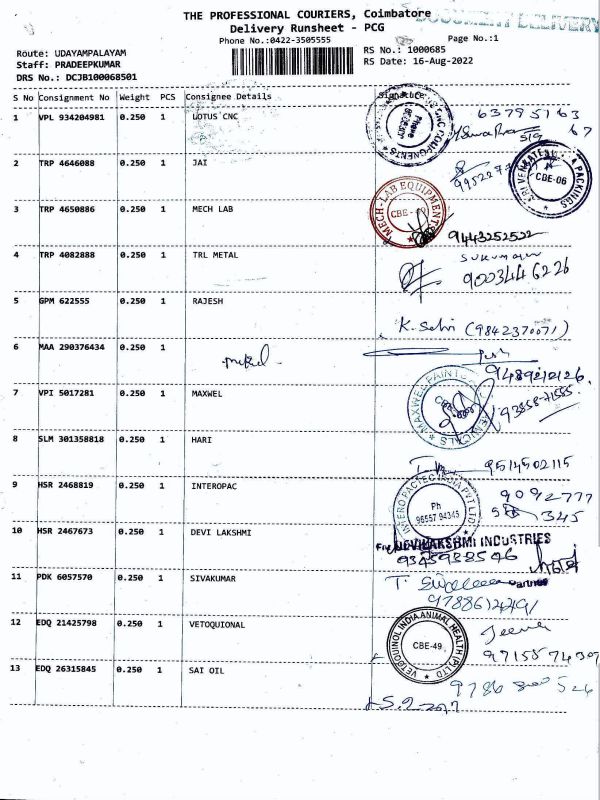 THE PROFESSIONAL COURIERS, Coimbatore
DOCUMENT DELIVERY
Delivery Runsheet - PCG
Phone No.:0422-3505555
Page No.:1
Route: UDAYAMPALAYAM
RS No.: 1000685
Staff: PRADEEPKUMAR
RS Date: 16-Aug-2022
DRS No.: DCJB100068501
S No Consignment No Weight PCS Consignee Details Signature
1 VPL 934204981 0.250 1 LOTUS CNC
CNC COMPONENTS
Phone
63795163
67
2 TRP 4646088 0.250 1 JAI
SRI VENKATESA PACKINGS
CBE-06
3 TRP 4650886 0.250 1 MECH LAB
MECH-LAB EQUIPMENT
CBE -
9443252522
4 TRP 4082888 0.250 1 TRL METAL
SUKUMARAN
9003446226
5 GPM 622555 0.250 1 RAJESH
K. Selvi (9842370071)
6 MAA 290376434 0.250 1
9489212126
7 VPI 5017281 0.250 1 MAXWEL
MAXWEL PAINTS CHEMICALS
93858-71555
8 SLM 301358818 0.250 1 HARI
9514502115
9 HSR 2468819 0.250 1 INTEROPAC
INTEROPACTEC INDIA PVT LTD
Ph
96557 94345
9092777
345
10 HSR 2467673 0.250 1 DEVI LAKSHMI
For DEVILAKSHMI INDUSTRIES
9345938546
Partner
11 PDK 6057570 0.250 1 SIVAKUMAR
9788612491
12 EDQ 21425798 0.250 1 VETOQUIONAL
VETOQUINOL INDIA ANIMAL HEALTH (P) LTD
CBE-49
Jeeva
9715574307
13 EDQ 26315845 0.250 1 SAI OIL